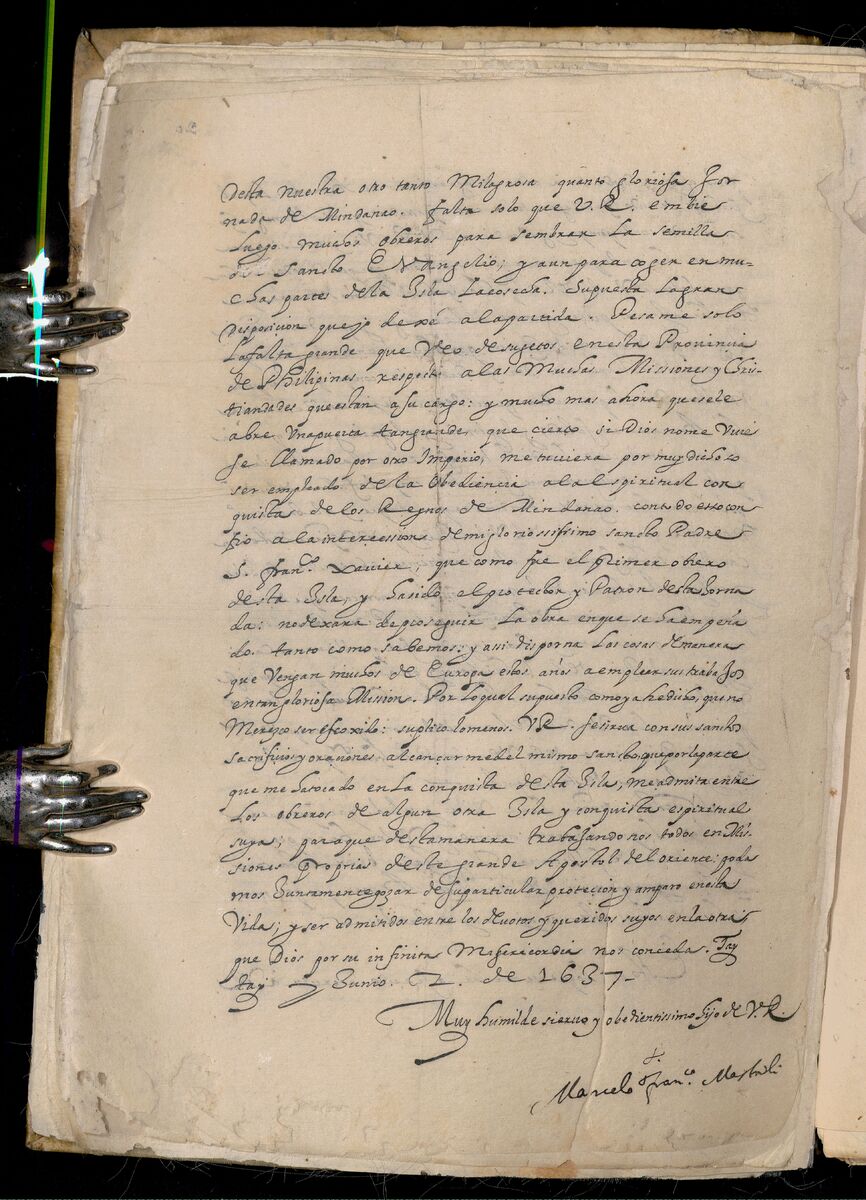 desta nuestra otro tanto Milagrosa quanto gloriosa Jor
nada de Mindanao. falta solo que V.R. embie
luego muchos obreros para sembrar la semilla
del Sancto EVangelio; y aun para coger en mu-
chas partes de la Isla la cosecha. Supuesta la gran
disposicion que yo dexé a la partida. Pesame solo
la falta grande que Veo de sujetos en esta Provincia
de Philipinas respecto a las Muchas Missiones y Chris-
tiandades que estan a su cargo: y mucho mas ahora que se le
abre Una puerta tan grande, que cierto si Dios no me Vuie
se llamado por otro Imperio, me tuviera por muy dichoso
ser empleado de la Obediencia a la espiritual con
quista de los Reynos de Mindanao. con todo esso con
fio a la intercession de mi gloriossissimo sancto Padre
S. Fran.co Xavier, que como fue el primer obrero
desta Isla, y ha sido el protector y Patron desta Jorna
da: no dexara de proseguir la obra en que se ha empeña
do tanto como sabemos: y assi disporna las cosas de manera
que Vengan muchos de Europa estos años a emplear sus trabajos
en tan gloriosa Mission. Por lo qual supuesto como ya he dicho, que no
Merezco ser escoxido: suplico lo menos. V.R. se sirva con sus sanctos
sacrificios y oraciones alcançarme del mismo sancto, que por la parte
que me ha tocado en La conquista desta Isla, me admita entre
los obreros de algun otra Isla y conquista espiritual
suya; para que desta manera trabajando nos todos en Mis-
siones proprias deste grande Apostol del oriente: poda
mos Juntamente gozar de su particular protecion y amparo en esta
Vida; y ser admitidos entre los devotos y queridos suyos en la otra
que Dios por su infinita Misericordia nos conceda. Tay
tay y Junio. 2. de 1637-
Muy humilde siervo y obedientissimo hijo de V.R.
Marcelo Fran.co Mastrili